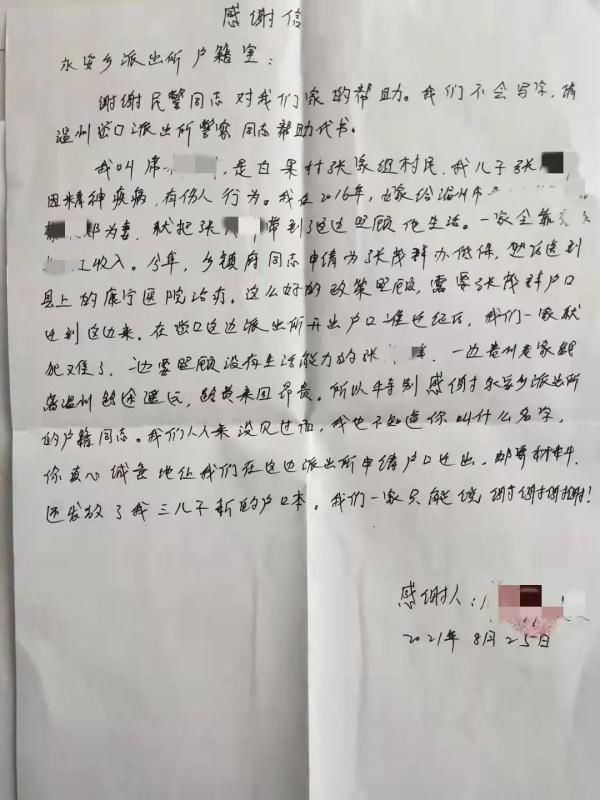 感谢信
永安乡派出所户籍室：
谢谢民警同志对我们家的帮助。我们不会写字，请
温州岙口派出所警察同志帮助代书。
我叫席，是白果村张家组村民，我儿子张
因精神疾病，有伤人行为。我在2016年，出家给温州市
为妻，就把张带到了这边照顾他生活。一家全靠
工收入。今年，乡镇府同志申请为张茂群办低保，然后送到
县上的康宁医院治疗。这么好的政策照顾，需要张茂群户口
迁到这边来。在岙口这边派出所开出户口准迁证后，我们一家就
犯又难了，一边要照顾没有生活能力的张，一边贵州老家距
离温州路途遥远，路费来回昂贵。所以特别感谢永安乡派出所
的户籍同志。我们从来没见过面，我也不知道你叫什么名字，
你真心诚意地让我们在这边派出所申请户口迁出，邮寄材料，
还发放了我三儿子新的户口本。我们一家只能说，谢谢谢谢！
感谢人：
2021年8月25日